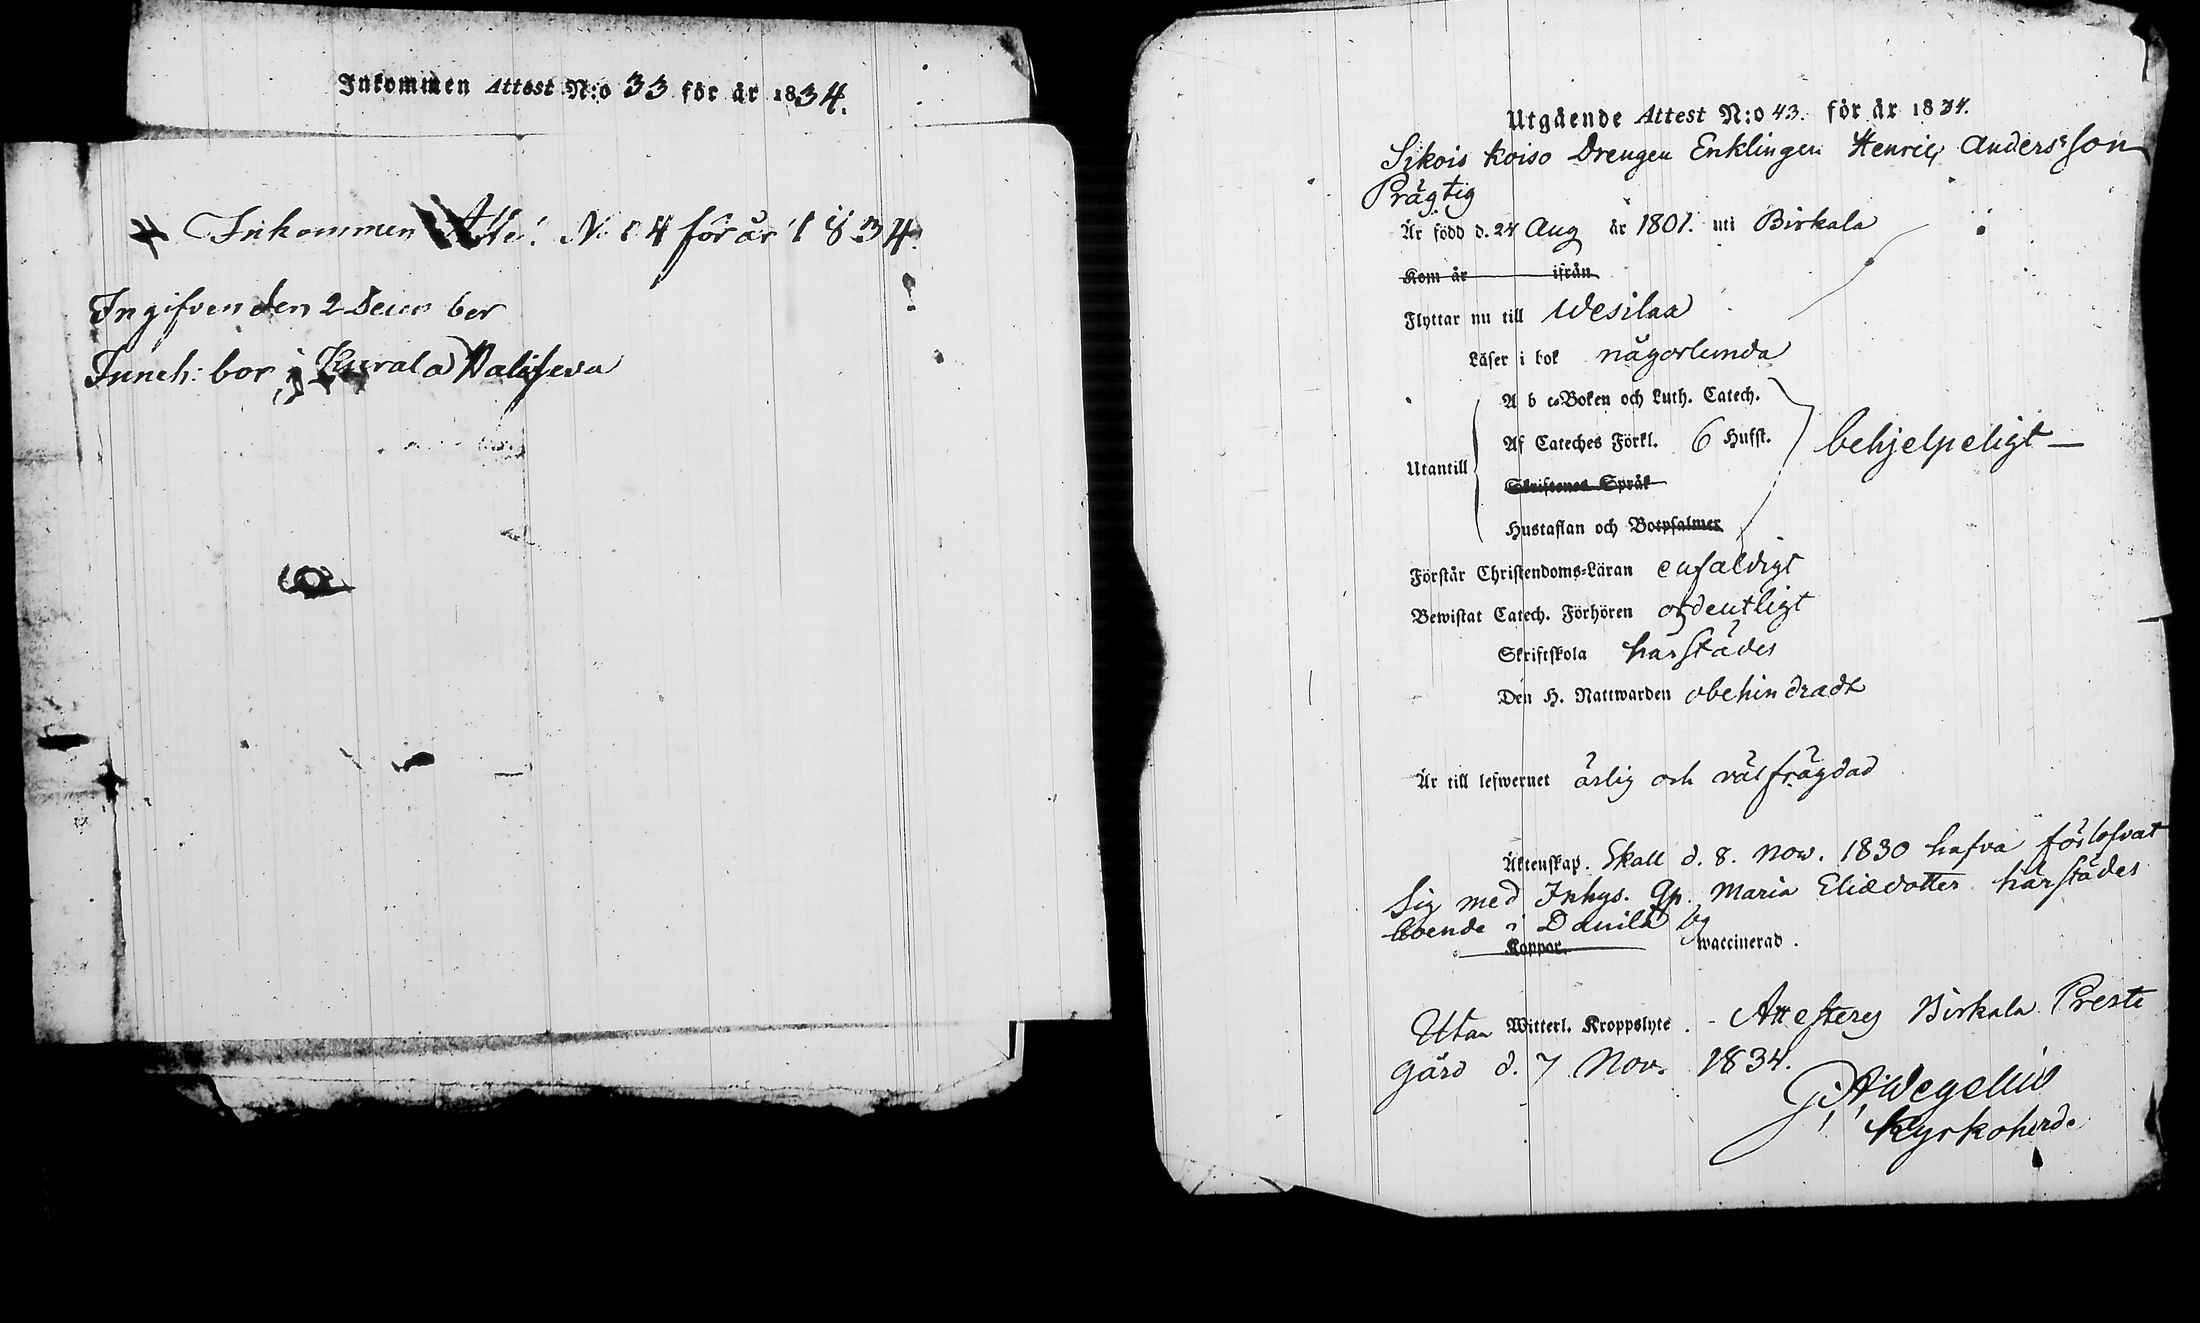 Inkommen Attest N:o 33 för år 1834.
Inkommen Atte: No 14 för år 1834.
Ingifven den 2 December
Inneh: bor i Kurala
Utgående Attest N:o 43. för år 1834.
Sikois Koiso Drengen Enklingen Henric Anders:son
Prägtig
Är född d. 24 Aug år 1801. uti Birkala
Kom år ifrån
Flyttar nu till Wesilax
Läser i bok någorlunda
A b c-Boken och Luth. Catech.
Af Cateches Förkl. 6 Hufst.
behjelpeligt
Utantill
Skriftenes Språk
Hustaflan och Botpsalmer
Förstår Christendoms-Läran enfaldigt
Bewistat Catech. Förhören ordentligt
Skriftskola härstädes
Den H. Nattwarden obehindradt
Är till lefwernet ärlig och välfrägdad
Äktenskap. Skall d. 8. Nov. 1830 hafva förlofvat
sig med Inhys. Qp. Maria Eliædotter härstädes
boende i Danila by
Koppor waccinerad.
Utan Witterl. Kroppslyte. - Attesterg Birkala Preste
gård d. 7 Nov. 1834.
G: A: Wegelius
Kyrkoherde